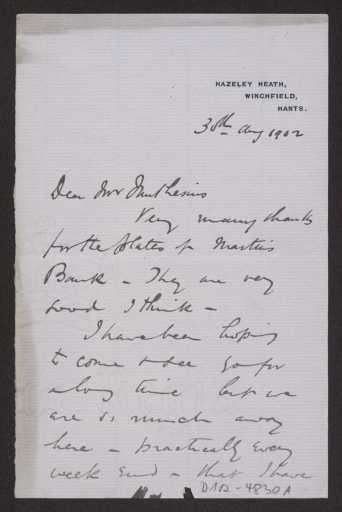 HAZELEY HEATH,
WINCHFIELD,
HANTS.
30th Aug 1902
Dear Mr Muthesius
Very many thanks
for the plates of Martins
Bank – They are very
good I think –
I have been hoping
to come & see you for
a long time but we
are so much away
here – practically every
week end – that I have
D102-4830A